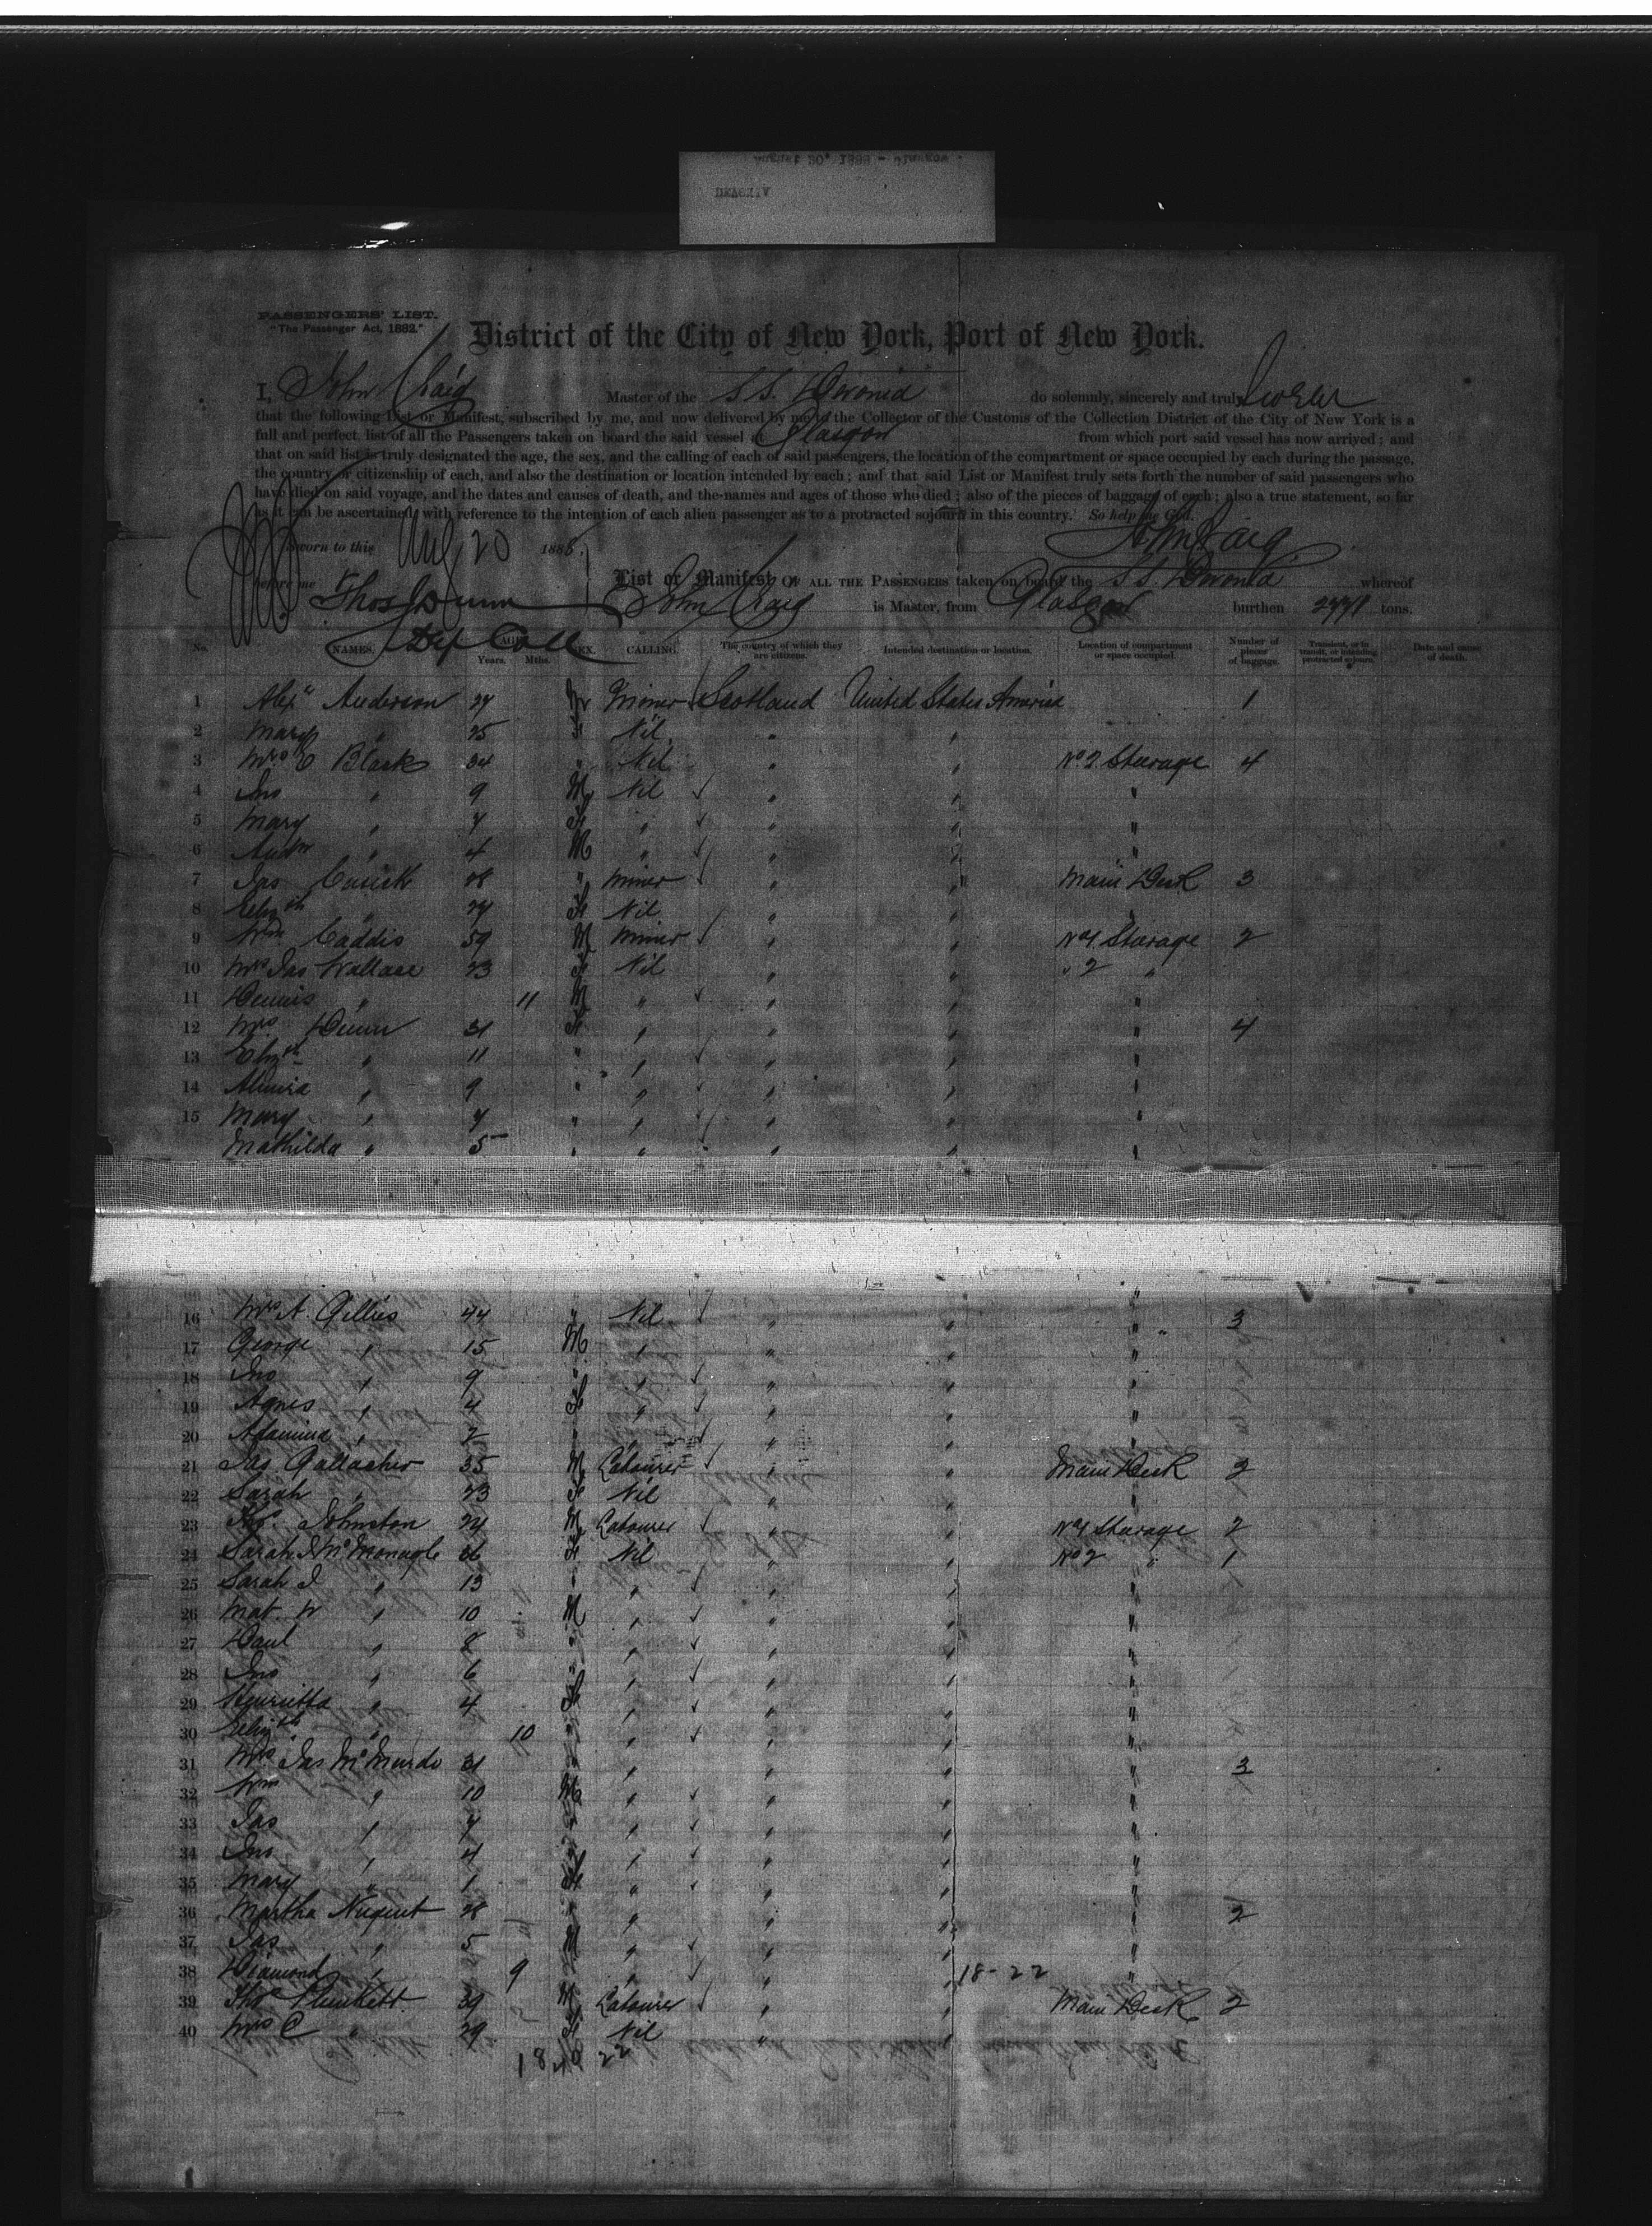 August 20, 1888 - Glasgow
DEVONIA
PASSENGERS' LIST.
"The Passenger Act, 1882."
District of the City of New York, Port of New York.
I, John Craig Master of the S.S. Devonia do solemnly, sincerely and truly swear
that the following List or Manifest, subscribed by me, and now delivered by me to the Collector of the Customs of the Collection District of the City of New York is a
full and perfect list of all the Passengers taken on board the said vessel at Glasgow from which port said vessel has now arrived; and
that on said list is truly designated the age, the sex, and the calling of each of said passengers, the location of the compartment or space occupied by each during the passage,
the country of citizenship of each, and also the destination or location intended by each; and that said List or Manifest truly sets forth the number of said passengers who
have died on said voyage, and the dates and causes of death, and the names and ages of those who died; also of the pieces of baggage of each; also a true statement, so far
as it can be ascertained, with reference to the intention of each alien passenger as to a protracted sojourn in this country. So help me God.
Sworn to this Aug 20 1888. John Craig
before me Thos Dunn List or Manifest OF ALL THE PASSENGERS taken on board the S.S. Devonia whereof
John Craig is Master, from Glasgow burthen tons.
Dep Coll
No. NAMES. AGE. Years. Mths. SEX. CALLING. The country of which they are citizens. Intended destination or location. Location of compartment or space occupied. Number of pieces of baggage. Transient, or in transit, or intending protracted sojourn. Date and cause of death.
1 Alexr Anderson 27 M Miner Scotland United States America 1
2 Mary " 25 F Nil " "
3 Mrs E Black 34 " Nil " " No 2 Steerage 4
4 Jno " 9 M Nil " " "
5 Mary " 7 F " " " "
6 Andw " 4 M " " " "
7 Jas Cusick 28 " Miner " " Main Deck 3
8 Elizth " 27 F Nil " " "
9 Wm Caddis 59 M Miner " " No 1 Steerage 2
10 Mrs Jas Wallace 23 F Nil " " " 2 "
11 Dennis " 11 M " " " "
12 Mrs Dunn 31 F " " " " 4
13 Elizth " 11 " " " " "
14 Almira " 9 " " " " "
15 Mary " 7 " " " " "
Mathilda " 5 " " " " "
16 Mrs A. Gillies 44 " Nil " " " " 3
17 George " 15 M " " " "
18 Jno " 9 " " " " "
19 Agnes " 4 F " " " "
20 Adamina " 2 " " " " "
21 Jas Gallagher 35 M Labourer " " Main Deck 2
22 Sarah " 23 F Nil " " "
23 Thos Johnston 24 M Labourer " " No 1 Steerage 2
24 Sarah McMonagle 36 F Nil " " No 2 " 1
25 Sarah J " 13 " " " " "
26 Mat. W " 10 M " " " "
27 Paul " 8 " " " " "
28 Jno " 6 " " " " "
29 Henrietta " 4 F " " " "
30 Elizth " 10 " " " " "
31 Mrs Jas McMurdo 31 " " " " " 3
32 Wm " 10 M " " " "
33 Jas " 7 " " " " "
34 Jno " 4 " " " " "
35 Mary " 1 F " " " "
36 Martha Nugent 28 " " " " " 2
37 Jas " 5 M " " " "
38 Diamond " 9 " " " " 18-22 "
39 Thos Plunkett 39 M Labourer " " Main Deck 2
40 Mrs C " 29 F Nil " "
18 40 22